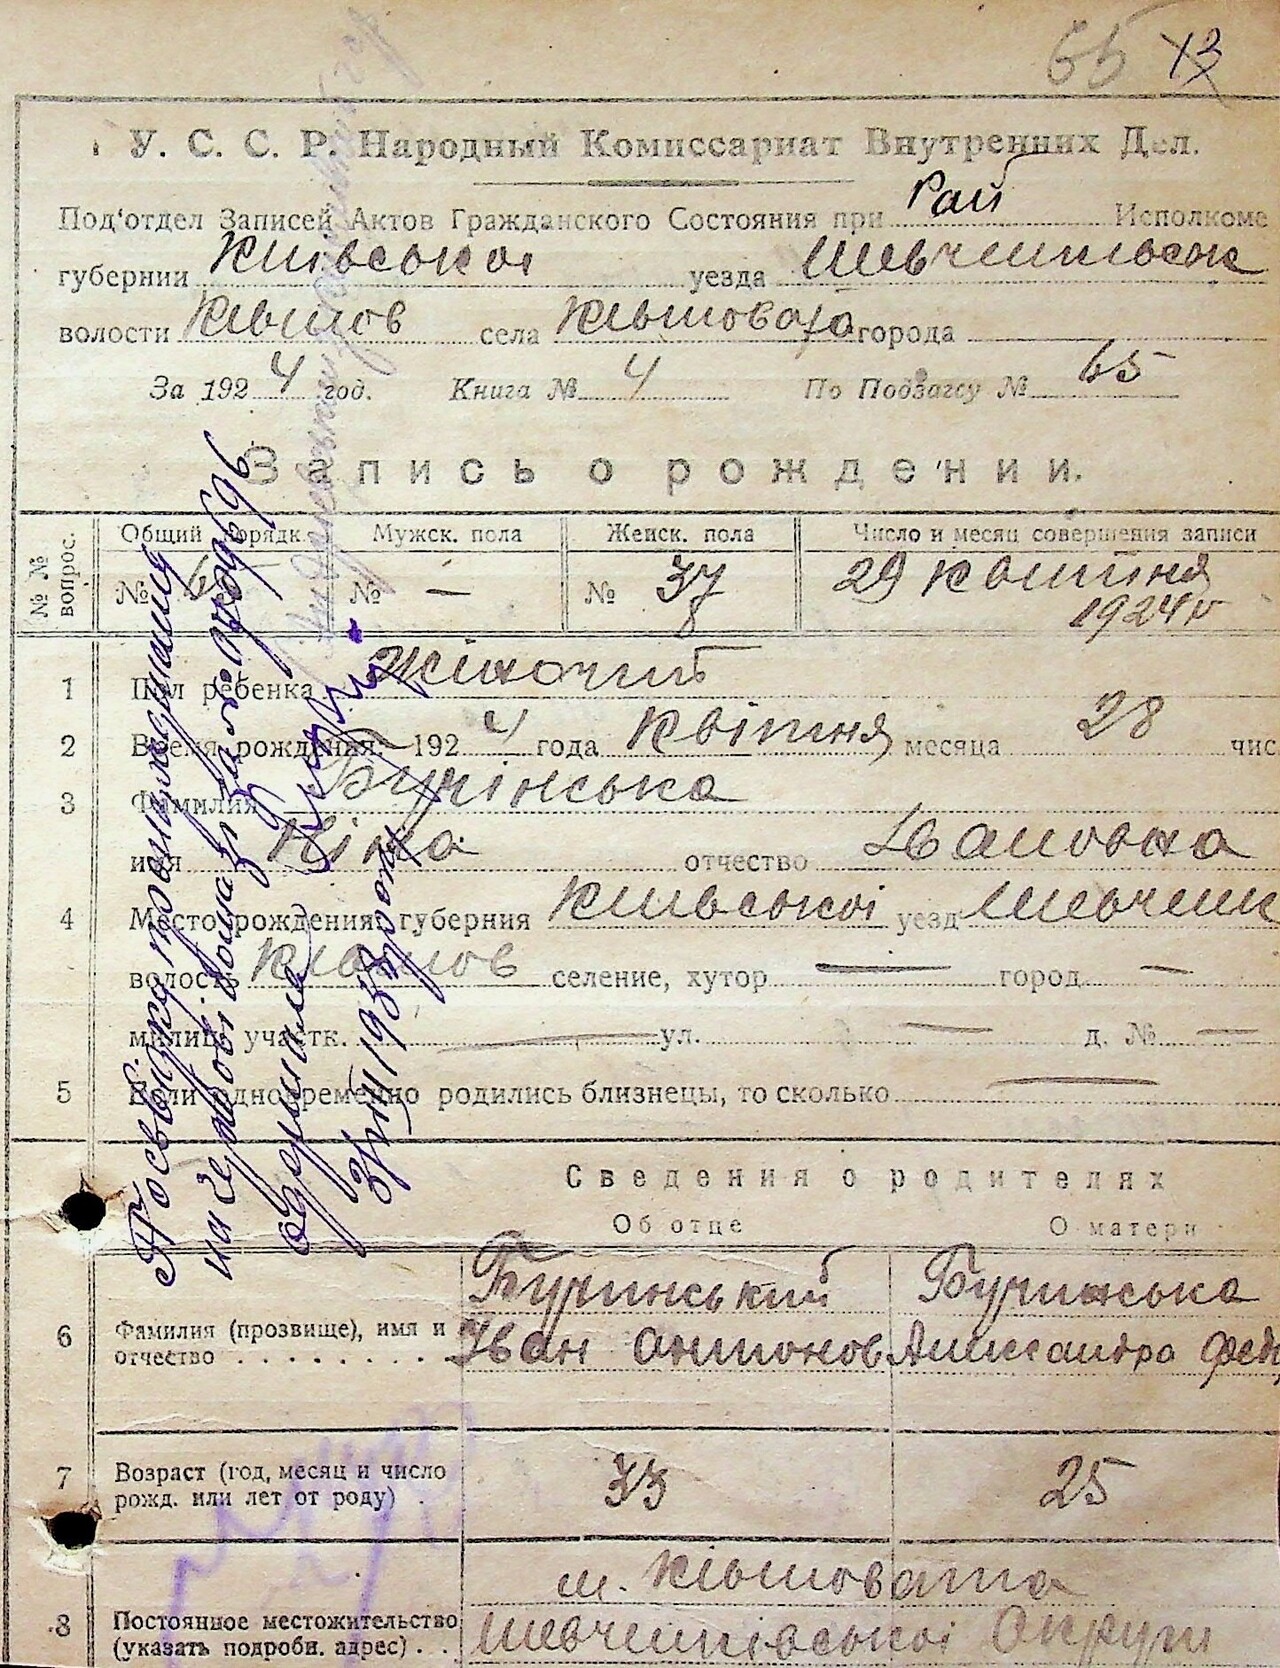 65 13
У. С. С. Р. Народный Комиссариат Внутренних Дел.
Под'отдел Записей Актов Гражданского Состояния при Рай Исполкоме
губернии Київської уезда Шевченківськ
волости Ківшов села Ківшовата города
За 1924 год. Книга № 4 По Подзагсу № 65
Запись о рождении.
№ № вопрос.
Общий порядк. Мужск. пола Женск. пола Число и месяц совершения записи
№ 65 № — № 37 29 квітня
1924 г
1 Пол ребенка Жіночий
2 Время рождения: 1924 года Квітня месяца 28 чис
3 Фамилия Бучінська
имя Ніна отчество Івановна
4 Место рождения: губерния Київської уезд Шевченк
волость Ківшов селение, хутор — город —
милиц. участк. — ул. — д. № —
5 Если одновременно родились близнецы, то сколько —
Посвідку про народження
на черговій
одержала
31/VIII 1933 року
Сведения о родителях
Об отце О матери
Бучинський Бучинська
6 Фамилия (прозвище), имя и Іван Антонов Александра Фед
отчество
7 Возраст (год, месяц и число 33 25
рожд. или лет от роду)
м. Ківшовата
8 Постоянное местожительство Шевченківської Округи
(указать подробн. адрес)